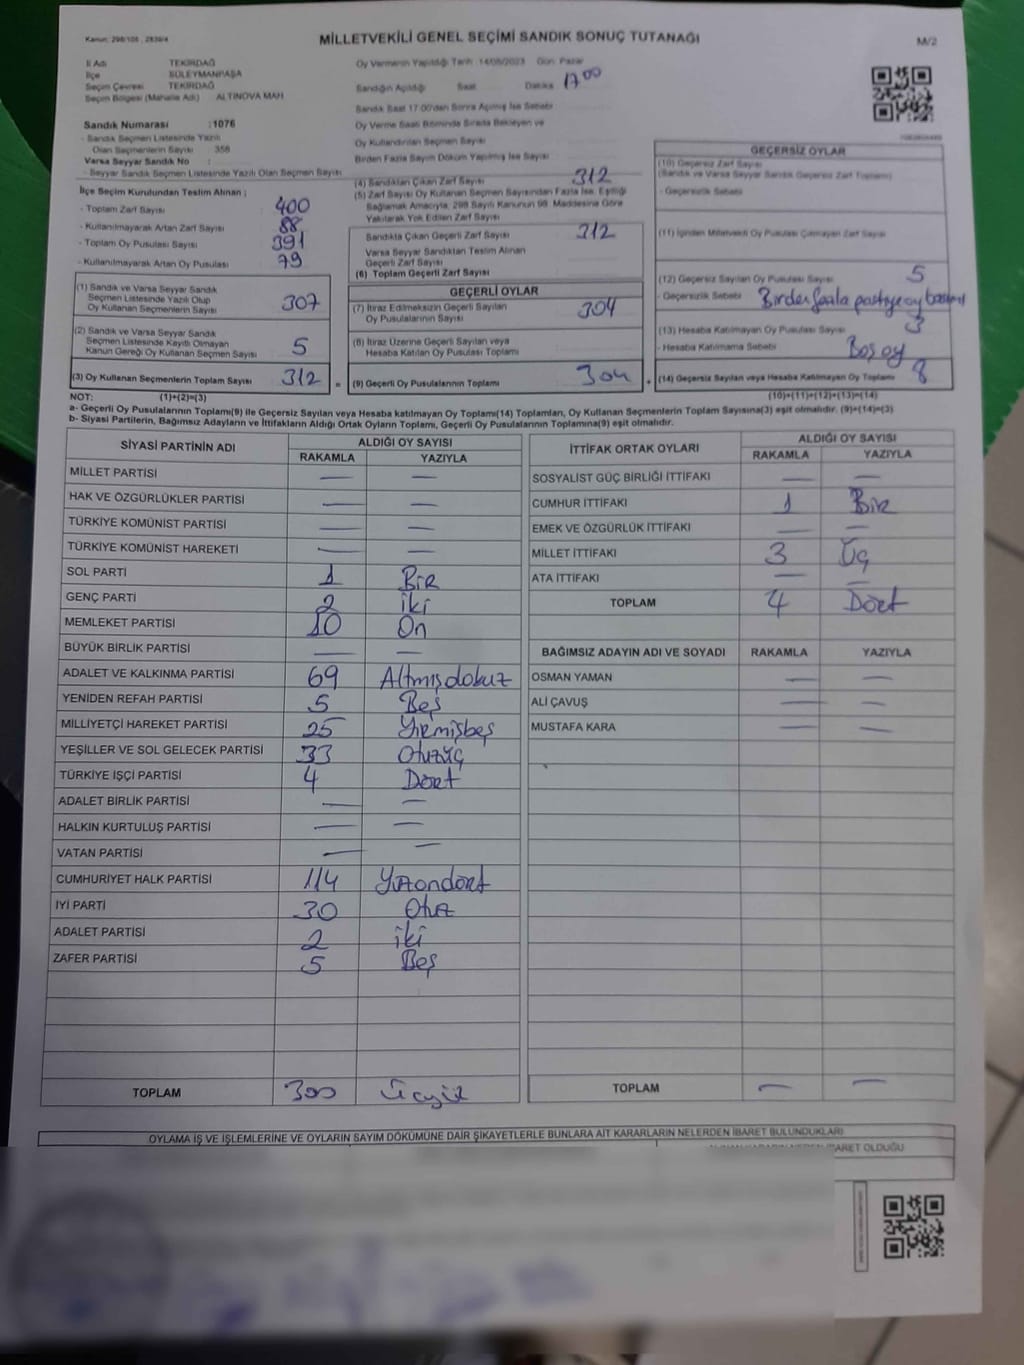 Kanun: 298/105 , 2839/4
MİLLETVEKİLİ GENEL SEÇİMİ SANDIK SONUÇ TUTANAĞI
M/2
İl Adı TEKİRDAĞ
İlçe SÜLEYMANPAŞA
Seçim Çevresi TEKİRDAĞ
Seçim Bölgesi (Mahalle Adı) ALTINOVA MAH
Sandık Numarası :1076
- Sandık Seçmen Listesinde Yazılı
Olan Seçmenlerin Sayısı 358
Varsa Seyyar Sandık No :
- Seyyar Seçmen Listesinde Yazılı Olan Seçmen Sayısı
Oy Vermenin Yapıldığı Tarih :14/05/2023 Gün: Pazar
Sandığın Açıldığı Saat Dakika 17 00
Sandık Saat 17:00'dan Sonra Açılmış İse Sebebi
Oy Verme Saati Bitiminde Sırada Bekleyen ve
Oy Kullandırılan Seçmen Sayısı
Birden Fazla Sayım Döküm Yapılmış İse Sayısı
İlçe Seçim Kurulundan Teslim Alınan ;
- Toplam Zarf Sayısı 400
- Kullanılmayarak Artan Zarf Sayısı 88
- Toplam Oy Pusulası Sayısı 391
- Kullanılmayarak Artan Oy Pusulası 79
(1) Sandık ve Varsa Seyyar Sandık
Seçmen Listesinde Yazılı Olup
Oy Kullanan Seçmenlerin Sayısı 307
(2) Sandık ve Varsa Seyyar Sandık
Seçmen Listesinde Kayıtlı Olmayan
Kanun Gereği Oy Kullanan Seçmen Sayısı 5
(3) Oy Kullanan Seçmenlerin Toplam Sayısı 312
(4) Sandıktan Çıkan Zarf Sayısı 312
(5) Zarf Sayısı Oy Kullanan Seçmen Sayısından Fazla İse, Eşitliği
Sağlamak Amacıyla, 298 Sayılı Kanunun 98. Maddesine Göre
Yakılarak Yok Edilen Zarf Sayısı
Sandıkta Çıkan Geçerli Zarf Sayısı 312
Varsa Seyyar Sandıktan Teslim Alınan
Geçerli Zarf Sayısı
(6) Toplam Geçerli Zarf Sayısı
GEÇERLİ OYLAR
(7) İtiraz Edilmeksizin Geçerli Sayılan
Oy Pusulalarının Sayısı 304
(8) İtiraz Üzerine Geçerli Sayılan veya
Hesaba Katılan Oy Pusulası Toplamı
= (9) Geçerli Oy Pusulalarının Toplamı 304 +
GEÇERSİZ OYLAR
(10) Geçersiz Zarf Sayısı
(Sandık ve Varsa Seyyar Sandık Geçersiz Zarf Toplamı)
- Geçersizlik Sebebi
(11) İçinden Milletvekili Oy Pusulası Çıkmayan Zarf Sayısı
(12) Geçersiz Sayılan Oy Pusulası Sayısı 5
- Geçersizlik Sebebi Birden fazla partiye oy
(13) Hesaba Katılmayan Oy Pusulası Sayısı 3
- Hesaba Katılmama Sebebi Boş oy
(14) Geçersiz Sayılan veya Hesaba Katılmayan Oy Toplamı 8
NOT: (1)+(2)=(3) (10)+(11)+(12)+(13)=(14)
a- Geçerli Oy Pusulalarının Toplamı(9) ile Geçersiz Sayılan veya Hesaba katılmayan Oy Toplamı(14) Toplamları, Oy Kullanan Seçmenlerin Toplam Sayısına(3) eşit olmalıdır. (9)+(14)=(3)
b- Siyasi Partilerin, Bağımsız Adayların ve İttifakların Aldığı Ortak Oyların Toplamı, Geçerli Oy Pusulalarının Toplamına(9) eşit olmalıdır.
SİYASİ PARTİNİN ADI ALDIĞI OY SAYISI
RAKAMLA YAZIYLA
MİLLET PARTİSİ — —
HAK VE ÖZGÜRLÜKLER PARTİSİ — —
TÜRKİYE KOMÜNİST PARTİSİ — —
TÜRKİYE KOMÜNİST HAREKETİ — —
SOL PARTİ 1 Bir
GENÇ PARTİ 2 iki
MEMLEKET PARTİSİ 10 On
BÜYÜK BİRLİK PARTİSİ — —
ADALET VE KALKINMA PARTİSİ 69 Altmışdokuz
YENİDEN REFAH PARTİSİ 5 Beş
MİLLİYETÇİ HAREKET PARTİSİ 25 Yirmişbeş
YEŞİLLER VE SOL GELECEK PARTİSİ 33 Otuzüç
TÜRKİYE İŞÇİ PARTİSİ 4 Dört
ADALET BİRLİK PARTİSİ — —
HALKIN KURTULUŞ PARTİSİ — —
VATAN PARTİSİ — —
CUMHURİYET HALK PARTİSİ 114 Yüzondört
İYİ PARTİ 30 Otuz
ADALET PARTİSİ 2 iki
ZAFER PARTİSİ 5 Beş
TOPLAM 300 Üçyüz
İTTİFAK ORTAK OYLARI ALDIĞI OY SAYISI
RAKAMLA YAZIYLA
SOSYALİST GÜÇ BİRLİĞİ İTTİFAKI — —
CUMHUR İTTİFAKI 1 Bir
EMEK VE ÖZGÜRLÜK İTTİFAKI — —
MİLLET İTTİFAKI 3 Üç
ATA İTTİFAKI — —
TOPLAM 4 Dört
BAĞIMSIZ ADAYIN ADI VE SOYADI RAKAMLA YAZIYLA
OSMAN YAMAN — —
ALİ ÇAVUŞ — —
MUSTAFA KARA — —
TOPLAM — —
OYLAMA İŞ VE İŞLEMLERİNE VE OYLARIN SAYIM DÖKÜMÜNE DAİR ŞİKAYETLERLE BUNLARA AİT KARARLARIN NELERDEN İBARET BULUNDUKLARI
İBARET OLDUĞU